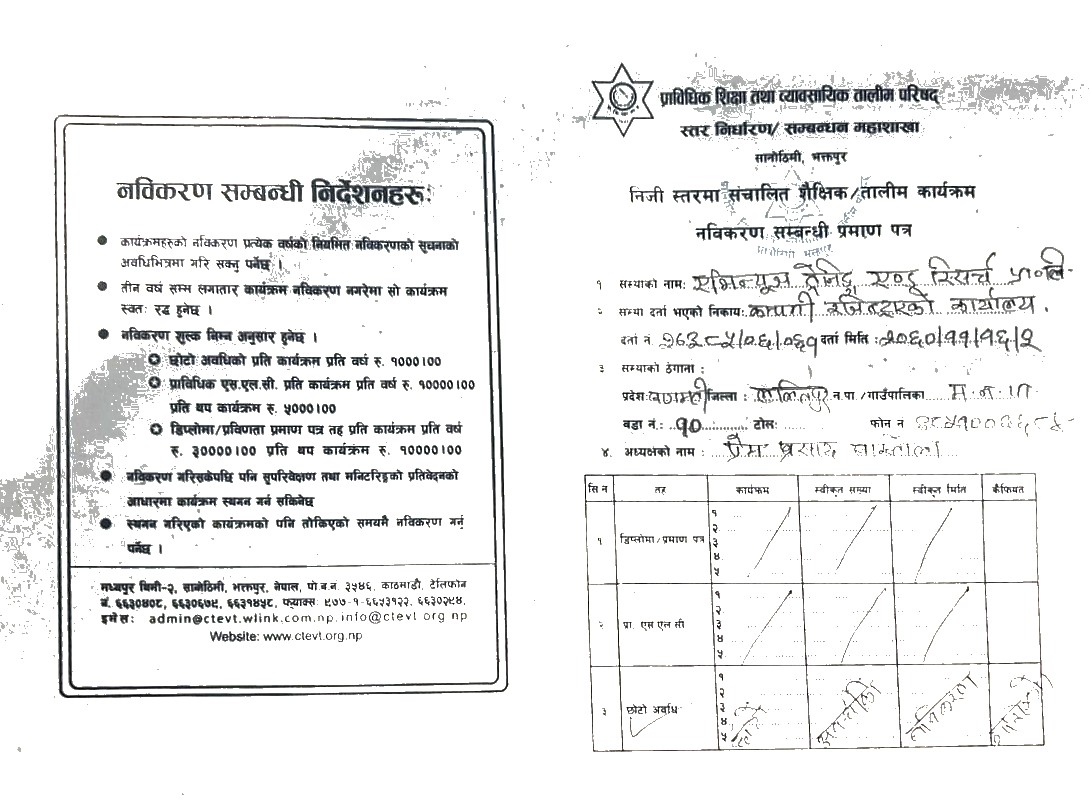 नविकरण सम्बन्धी निर्देशनहरुः
कार्यक्रमहरुको नविकरण प्रत्येक वर्षको नियमित नविकरणको सुचनाको
अवधिभित्रमा गरि सक्नु पर्नेछ ।
तीन वर्ष सम्म लगातार कार्यक्रम नविकरण नगरेमा सो कार्यक्रम
स्वतः रद्ध हुनेछ ।
नविकरण शुल्क निम्न अनुसार हुनेछ ।
छोटो अवधिको प्रति कार्यक्रम प्रति वर्ष रु. १०००।००
प्राविधिक एस.एल.सी. प्रति कार्यक्रम प्रति वर्ष रु. १००००।००
प्रति थप कार्यक्रम रु. ५०००।००
डिप्लोमा/प्रविणता प्रमाण पत्र तह प्रति कार्यक्रम प्रति वर्ष
रु. ३००००।०० प्रति थप कार्यक्रम रु. १००००।००
नविकरण गरिसकेपछि पनि सुपरिवेक्षण तथा मनिटरिङ्को प्रतिवेदनको
आधारमा कार्यक्रम स्थगन गर्न सकिनेछ
स्थगन गरिएको कार्यक्रमको पनि तोकिएको समयमै नविकरण गर्नु
पर्नेछ ।
मध्यपुर थिमी-२, सानोठिमी, भक्तपुर, नेपाल, पो.ब.नं. ३५४६, काठमाडौं, टेलिफोन
नं. ६६३०४०८, ६६३०६७९, ६६३१४५८, फ्याक्सः ९७७-१-६६५३१२२, ६६३०२९४,
इमेलः admin@ctevt.wlink.com.np, info@ctevt.org.np
Website: www.ctevt.org.np
प्राविधिक शिक्षा तथा व्यावसायिक तालीम परिषद्
स्तर निर्धारण/ सम्बन्धन महाशाखा
सानोठिमी, भक्तपुर
निजी स्तरमा संचालित शैक्षिक/तालीम कार्यक्रम
नविकरण सम्बन्धी प्रमाण पत्र
सानोठिमी भक्तपुर
१ सस्थाको नामः एभिन्यूस ट्रेनिङ्ग एण्ड रिसर्च प्रा॰लि
२ सस्था दर्ता भएको निकायः कम्पनी रजिस्ट्रारको कार्यालय.
दर्ता नं. दर्ता मिति : २०६०/११/१६/२
३ सस्थाको ठेगाना :
प्रदेशः बागमती जिल्ला : ललितपुर न.पा /गाउँपालिका म.न.पा
वडा नं.: १० टोलः फोन नं
४. अध्यक्षको नाम : प्रेम प्रसाद
सि न तह कार्यक्रम स्वीकृत सख्या स्वीकृत मिति कैफियत
१ डिप्लोमा/प्रमाण पत्र १ २ ३ ४ ५
२ प्रा. एस एल सी १ २ ३ ४ ५
३ छोटो अवधि १ २ ३ ४ ५ नविकरण